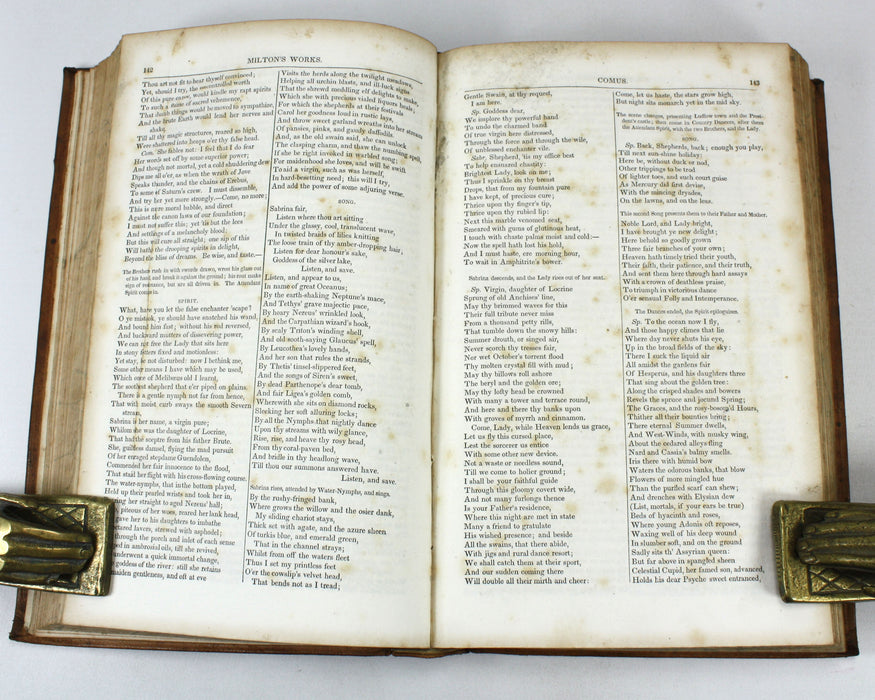 142
MILTON'S WORKS.
Thou art not fit to hear thyself convinced;
Yet, should I try, the uncontrolled worth
Of this pure cause, would kindle my rapt spirits
To such a flame of sacred vehemence,
That dumb things would be moved to sympathize,
And the brute Earth would lend her nerves and
shake,
Till all thy magic structures, reared so high,
Were shattered into heaps o'er thy false head.
Com. She fables not: I feel that I do fear
Her words set off by some superior power;
And though not mortal, yet a cold shuddering dew
Dips me all o'er, as when the wrath of Jove
Speaks thunder, and the chains of Erebus,
To some of Saturn's crew. I must dissemble,
And try her yet more strongly.—Come, no more;
This is mere moral babble, and direct
Against the canon laws of our foundation;
I must not suffer this; yet 'tis but the lees
And settlings of a melancholy blood:
But this will cure all straight; one sip of this
Will bathe the drooping spirits in delight,
Beyond the bliss of dreams. Be wise, and taste.—
The Brothers rush in with swords drawn, wrest his glass out
of his hand, and break it against the ground; his rout make
sign of resistance, but are all driven in. The Attendant
Spirit comes in.
SPIRIT.
What, have you let the false enchanter 'scape?
O ye mistook, ye should have snatched his wand,
And bound him fast; without his rod reversed,
And backward mutters of dissevering power,
We can not free the Lady that sits here
In stony fetters fixed and motionless:
Yet stay, be not disturbed: now I bethink me,
Some other means I have which may be used,
Which once of Melibœus old I learnt,
The soothest shepherd that e'er piped on plains.
There is a gentle nymph not far from hence,
That with moist curb sways the smooth Severn
stream,
Sabrina is her name, a virgin pure;
Whilom she was the daughter of Locrine,
That had the sceptre from his father Brute.
She, guiltless damsel, flying the mad pursuit
Of her enraged stepdame Guendolen,
Commended her fair innocence to the flood,
That staid her flight with his cross-flowing course.
The water-nymphs, that in the bottom played,
Held up their pearled wrists and took her in,
her straight to aged Nereus' hall;
piteous of her woes, reared her lank head,
gave her to his daughters to imbathe
lavers, strewed with asphodel;
through the porch and inlet of each sense
in ambrosial oils, till she revived,
underwent a quick immortal change,
goddess of the river: still she retains
maiden gentleness, and oft at eve
Visits the herds along the twilight meadows,
Helping all urchin blasts, and ill-luck signs
That the shrewd meddling elf delights to make,
Which she with precious vialed liquors heals;
For which the shepherds at their festivals
Carol her goodness loud in rustic lays,
And throw sweet garland wreaths into her stream
Of pansies, pinks, and gaudy daffodils.
And, as the old swain said, she can unlock
The clasping charm, and thaw the numbing spell,
If she be right invoked in warbled song;
For maidenhood she loves, and will be swift
To aid a virgin, such as was herself,
In hard-besetting need; this will I try,
And add the power of some adjuring verse.
SONG.
Sabrina fair,
Listen where thou art sitting
Under the glassy, cool, translucent wave,
In twisted braids of lilies knitting
The loose train of thy amber-dropping hair;
Listen for dear honour's sake,
Goddess of the silver lake,
Listen, and save.
Listen, and appear to us,
In name of great Oceanus;
By the earth-shaking Neptune's mace,
And Tethys' grave majestic pace,
By hoary Nereus' wrinkled look,
And the Carpathian wizard's hook,
By scaly Triton's winding shell,
And old sooth-saying Glaucus' spell,
By Leucothea's lovely hands,
And her son that rules the strands,
By Thetis' tinsel-slippered feet,
And the songs of Siren's sweet,
By dead Parthenope's dear tomb,
And fair Ligea's golden comb,
Wherewith she sits on diamond rocks,
Sleeking her soft alluring locks;
By all the Nymphs that nightly dance
Upon thy streams with wily glance,
Rise, rise, and heave thy rosy head,
From thy coral-paven bed,
And bridle in thy headlong wave,
Till thou our summons answered have.
Listen, and save.
Sabrina rises, attended by Water-Nymphs, and sings.
By the rushy-fringed bank,
Where grows the willow and the osier dank,
My sliding chariot stays,
Thick set with agate, and the azure sheen
Of turkis blue, and emerald green,
That in the channel strays;
Whilst from off the waters fleet
Thus I set my printless feet
O'er the cowslip's velvet head,
That bends not as I tread;
COMUS.
143
Gentle Swain, at thy request,
I am here.
Sp. Goddess dear,
We implore thy powerful hand
To undo the charmed band
Of true virgin here distressed,
Through the force and through the wile,
Of unblessed enchanter vile.
Sabr. Shepherd, 'tis my office best
To help ensnared chastity:
Brightest Lady, look on me;
Thus I sprinkle on thy breast
Drops, that from my fountain pure
I have kept, of precious cure;
Thrice upon thy finger's tip,
Thrice upon thy rubied lip:
Next this marble venomed seat,
Smeared with gums of glutinous heat,
I touch with chaste palms moist and cold:—
Now the spell hath lost his hold,
And I must haste, ere morning hour,
To wait in Amphitrite's bower.
Sabrina descends, and the Lady rises out of her seat.
Sp. Virgin, daughter of Locrine
Sprung of old Anchises' line,
May thy brimmed waves for this
Their full tribute never miss
From a thousand petty rills,
That tumble down the snowy hills:
Summer drouth, or singed air,
Never scorch thy tresses fair,
Nor wet October's torrent flood
Thy molten crystal fill with mud;
May thy billows roll ashore
The beryl and the golden ore;
May thy lofty head be crowned
With many a tower and terrace round,
And here and there thy banks upon
With groves of myrrh and cinnamon.
Come, Lady, while Heaven lends us grace,
Let us fly this cursed place,
Lest the sorcerer us entice
With some other new device.
Not a waste or needless sound,
Till we come to holier ground;
I shall be your faithful guide
Through this gloomy covert wide,
And not many furlongs thence
Is your Father's residence,
Where this night are met in state
Many a friend to gratulate
His wished presence; and beside
All the swains, that there abide,
With jigs and rural dance resort;
We shall catch them at their sport,
And our sudden coming there
Will double all their mirth and cheer:
Come, let us haste, the stars grow high,
But night sits monarch yet in the mid sky.
The scene changes, presenting Ludlow town and the Presi-
dent's castle; then come in Country Dancers, after them
the Attendant Spirit, with the two Brothers, and the Lady.
SONG.
Sp. Back, Shepherds, back; enough you play,
Till next sun-shine holiday:
Here be, without duck or nod,
Other trippings to be trod
Of lighter toes, and such court guise
As Mercury did first devise,
With the mincing dryades,
On the lawns, and on the leas.
This second Song presents them to their Father and Mother.
Noble Lord, and Lady bright,
I have brought ye new delight;
Here behold so goodly grown
Three fair branches of your own;
Heaven hath timely tried their youth,
Their faith, their patience, and their truth,
And sent them here through hard assays
With a crown of deathless praise,
To triumph in victorious dance
O'er sensual Folly and Intemperance.
The Dances ended, the Spirit epiloguises.
Sp. To the ocean now I fly,
And those happy climes that lie
Where day never shuts his eye,
Up in the broad fields of the sky:
There I suck the liquid air
All amidst the gardens fair
Of Hesperus, and his daughters three
That sing about the golden tree:
Along the crisped shades and bowers
Revels the spruce and jocund Spring;
The Graces, and the rosy-bosog'd Hours,
Thither all their bounties bring;
There eternal Summer dwells,
And West-Winds, with musky wing,
About the cedared alleys fling
Nard and Cassia's balmy smells.
Iris there with humid bow
Waters the odorous banks, that blow
Flowers of more mingled hue
Than the purfled scarf can shew,
And drenches with Elysian dew
(List, mortals, if your ears be true)
Beds of hyacinth and roses,
Where young Adonis oft reposes,
Waxing well of his deep wound
In slumber soft, and on the ground
Sadly sits th' Assyrian queen:
But far above in spangled sheen
Celestial Cupid, her famed son, advanced,
Holds his dear Psyche sweet entranced,